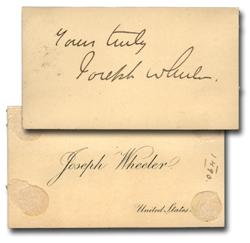 Yours truly
Joseph Wheeler.
Joseph Wheeler.
United States.